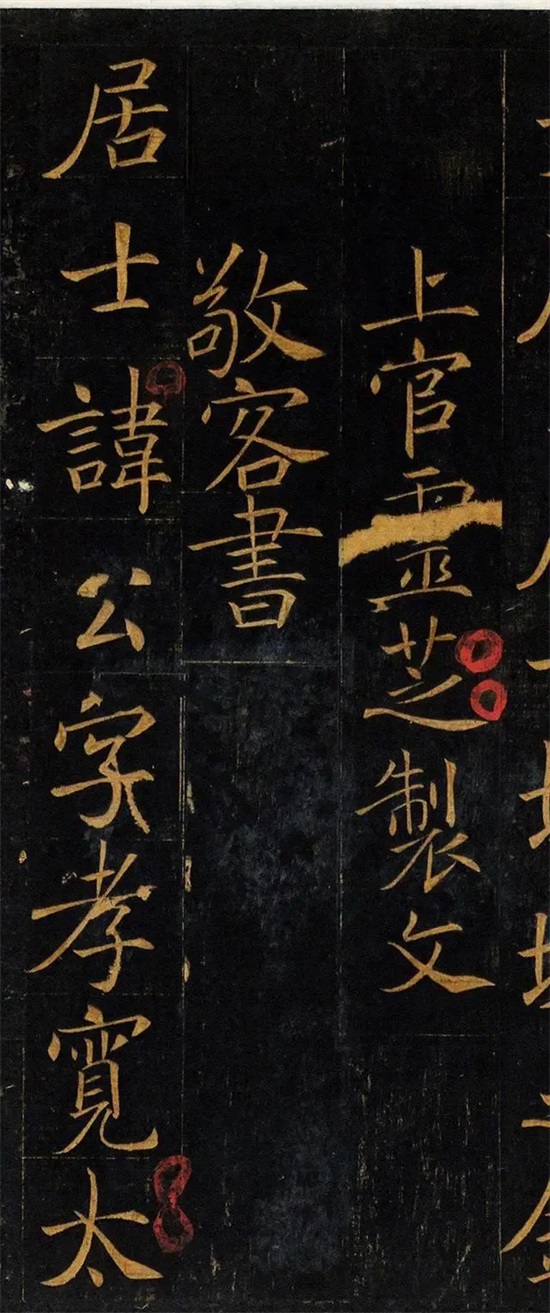 上官靈芝製文
敬客書
居士諱公字孝寬太